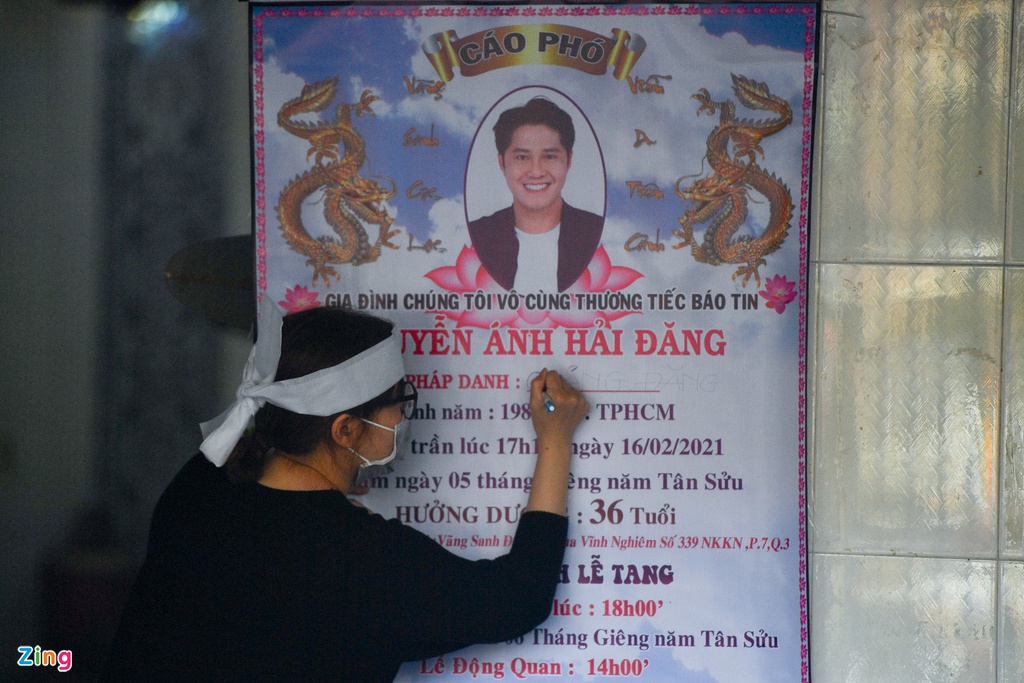 CÁO PHÓ
Vãng Sanh Cực Lạc
GIA ĐÌNH CHÚNG TÔI VÔ CÙNG THƯƠNG TIẾC BÁO TIN
UYỄN ÁNH HẢI ĐĂNG
PHÁP DANH : ĐĂNG
năm : 198 TPHCM
trần lúc 17h1 ngày 16/02/2021
ngày 05 tháng Giêng năm Tân Sửu
HƯỞNG DƯ : 36 Tuổi
Vãng Sanh Đ ua Vĩnh Nghiêm Số 339 NKKN ,P.7,Q.3
H LỄ TANG
lúc : 18h00’
Tháng Giêng năm Tân Sửu
Lễ Động Quan : 14h00’
Zing